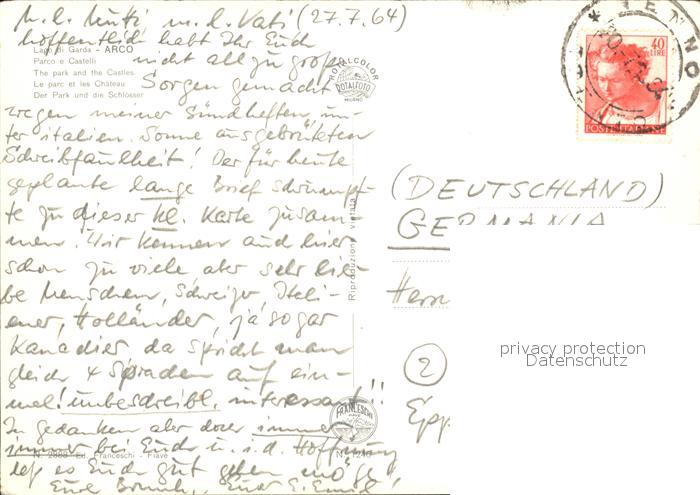 M. l. Mutti m. l. Vati (27.7.64)
hoffentlich habt Ihr Euch
Lago di Garda - ARCO
Parco e Castelli
The park and the Castles
Le parc et les Château
Der Park und die Schlösser
nicht all zu große
Sorgen gemacht
wegen meiner Sündhaften, un-
ter italien. Sonne ausgebrüteten
Schreibfaulheit! Der für heute
geplante lange Brief schrumpf-
te zu dieser kl. Karte zusam-
men. Wir kennen auch hier
schon zu viele aber sehr lie-
be Menschen, Schweizer, Itali-
ener, Holländer, ja sogar
Kanadier, da spricht man
gleich 4 Sprachen auf ein-
mal! unbeschreibl. interessant!!
In Gedanken aber immer
immer bei Euch u. i. d. Hoffnung
N. 2868 Ed. Franceschi - Fiavé
daß es Euch gut gehen möge!
Eure
ROTALCOLOR
ROTALFOTO
MILANO
Riproduzione vietata
FRANCESCHI
TENNO
40
LIRE
POSTE ITALIANE
(DEUTSCHLAND)
GERMANIA
Herrn
2
Epp
privacy protection
Datenschutz